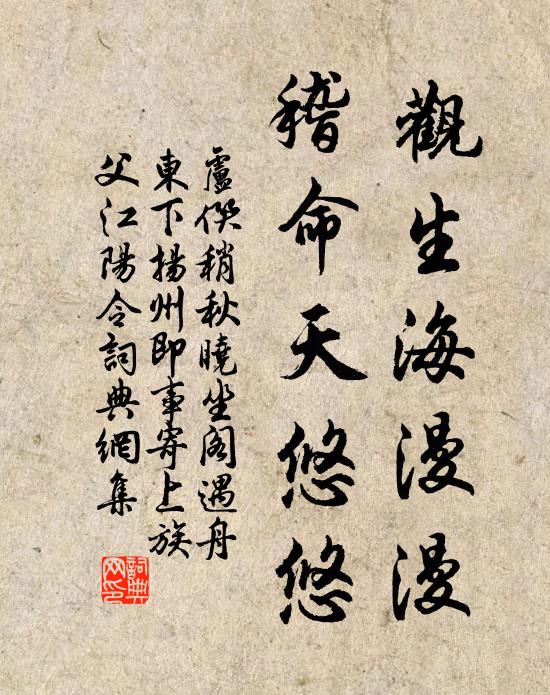 觀生海漫漫
稽命天悠悠
盧僎稍秋曉坐阁遇舟
東下揚州即事寄上族
父江陽令詞典網集
詞典
网印